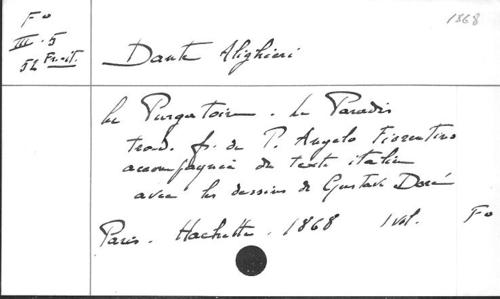 Fº
III. 5
52 Fr.-it.
1868
Dante Alighieri
Le Purgatoire. Le Paradis
trad. fr. de P. Angelo Fiorentino
accompagnée du texte italien
avec les dessins de Gustave Doré
Paris. Hachette. 1868 1 vol. Fº